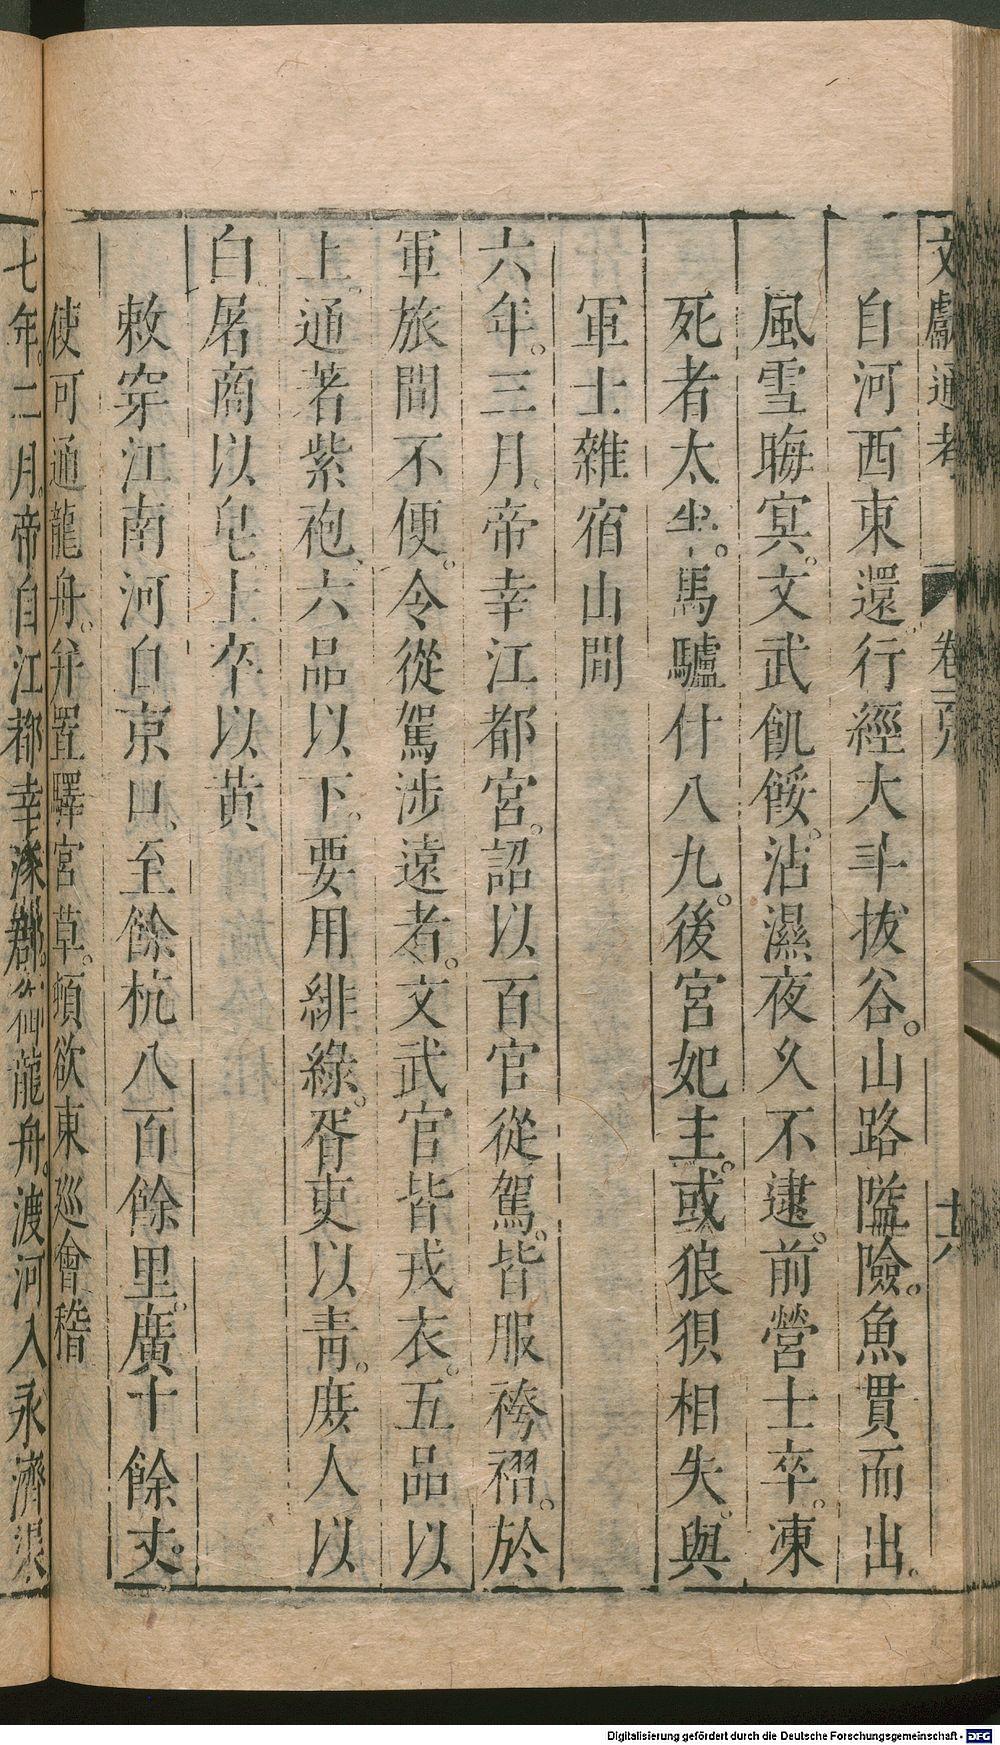 文獻通考 卷百 十六
自河西東還行經大斗拔谷。山路隘險。魚貫而出。
風雪晦冥。文武飢餒。沾濕夜久不逮。前營士卒。凍
死者太半。馬驢什八九。後宮妃主。或狼狽相失。與
軍士雜宿山間
六年。三月。帝幸江都宮。詔以百官從駕。皆服袴褶。於
軍旅間不便。令從駕涉遠者。文武官皆戎衣。五品以
上。通著紫袍、六品以下。要用緋綠。胥吏以青。庶人以
白屠商以皂。士卒以黃
敕穿江南河自京口、至餘杭八百餘里。廣十餘丈。
使可通龍舟。并置驛宮草。頓欲東巡會稽
七年。二月。帝自江都幸涿郡。御龍舟。渡河入永濟渠
Digitalisierung gefördert durch die Deutsche Forschungsgemeinschaft - DFG